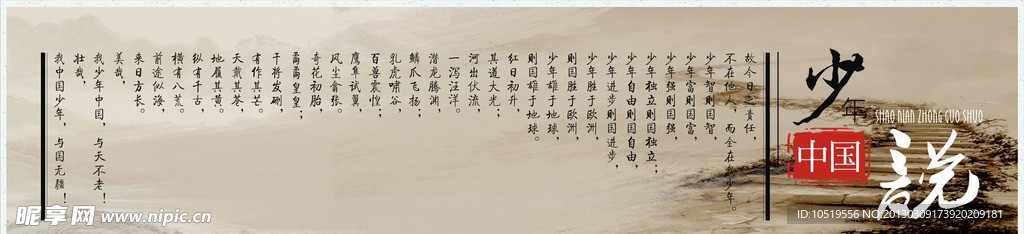 少年
中国
説
SHAO NIAN ZHONG GUO SHUO
故今日之责任，
不在他人，而全在我少年。
少年智则国智，
少年富则国富，
少年强则国强，
少年独立则国独立；
少年自由则国自由，
少年进步则国进步，
少年胜于欧洲，
则国胜于欧洲，
少年雄于地球，
则国雄于地球。
红日初升，
其道大光；
河出伏流，
一泻汪洋。
潜龙腾渊，
鳞爪飞扬；
乳虎啸谷，
百兽震惶；
鹰隼试翼，
风尘翕张。
奇花初胎，
矞矞皇皇；
干将发硎，
有作其芒。
天戴其苍，
地履其黄。
纵有千古，
横有八荒。
前途似海，
来日方长。
美哉，
我少年中国，与天不老！
壮哉，
我中国少年，与国无疆！
昵享网 www.nipic.cn
ID:10519556 NO:20130309173920209181